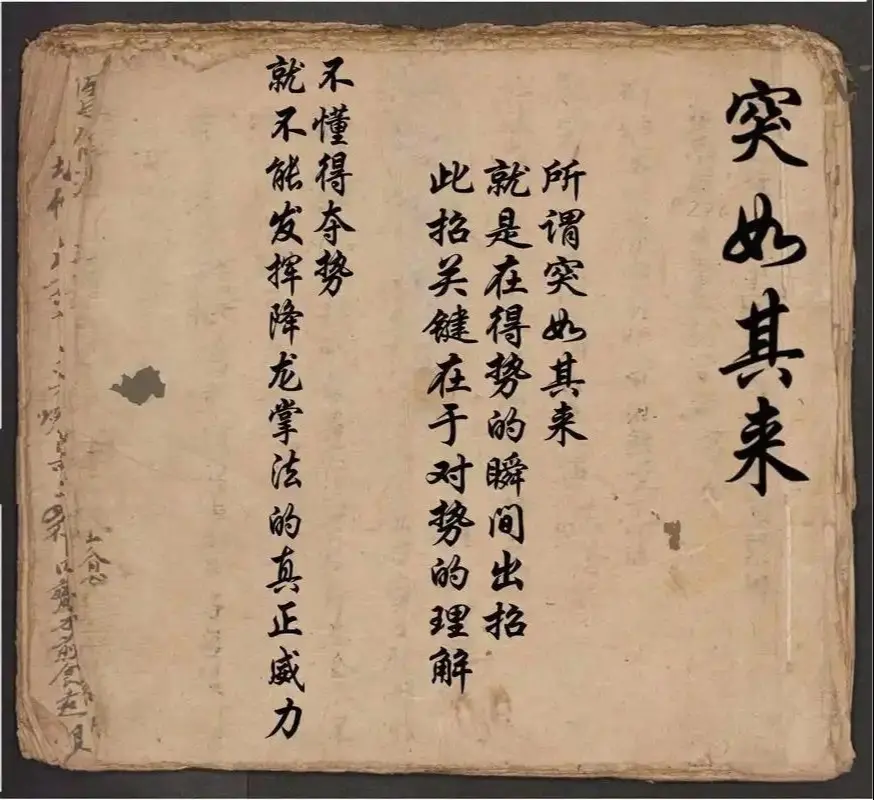 突如其来
所谓突如其来
就是在得势的瞬间出招
此招关键在于对势的理解
不懂得夺势
就不能发挥降龙掌法的真正威力